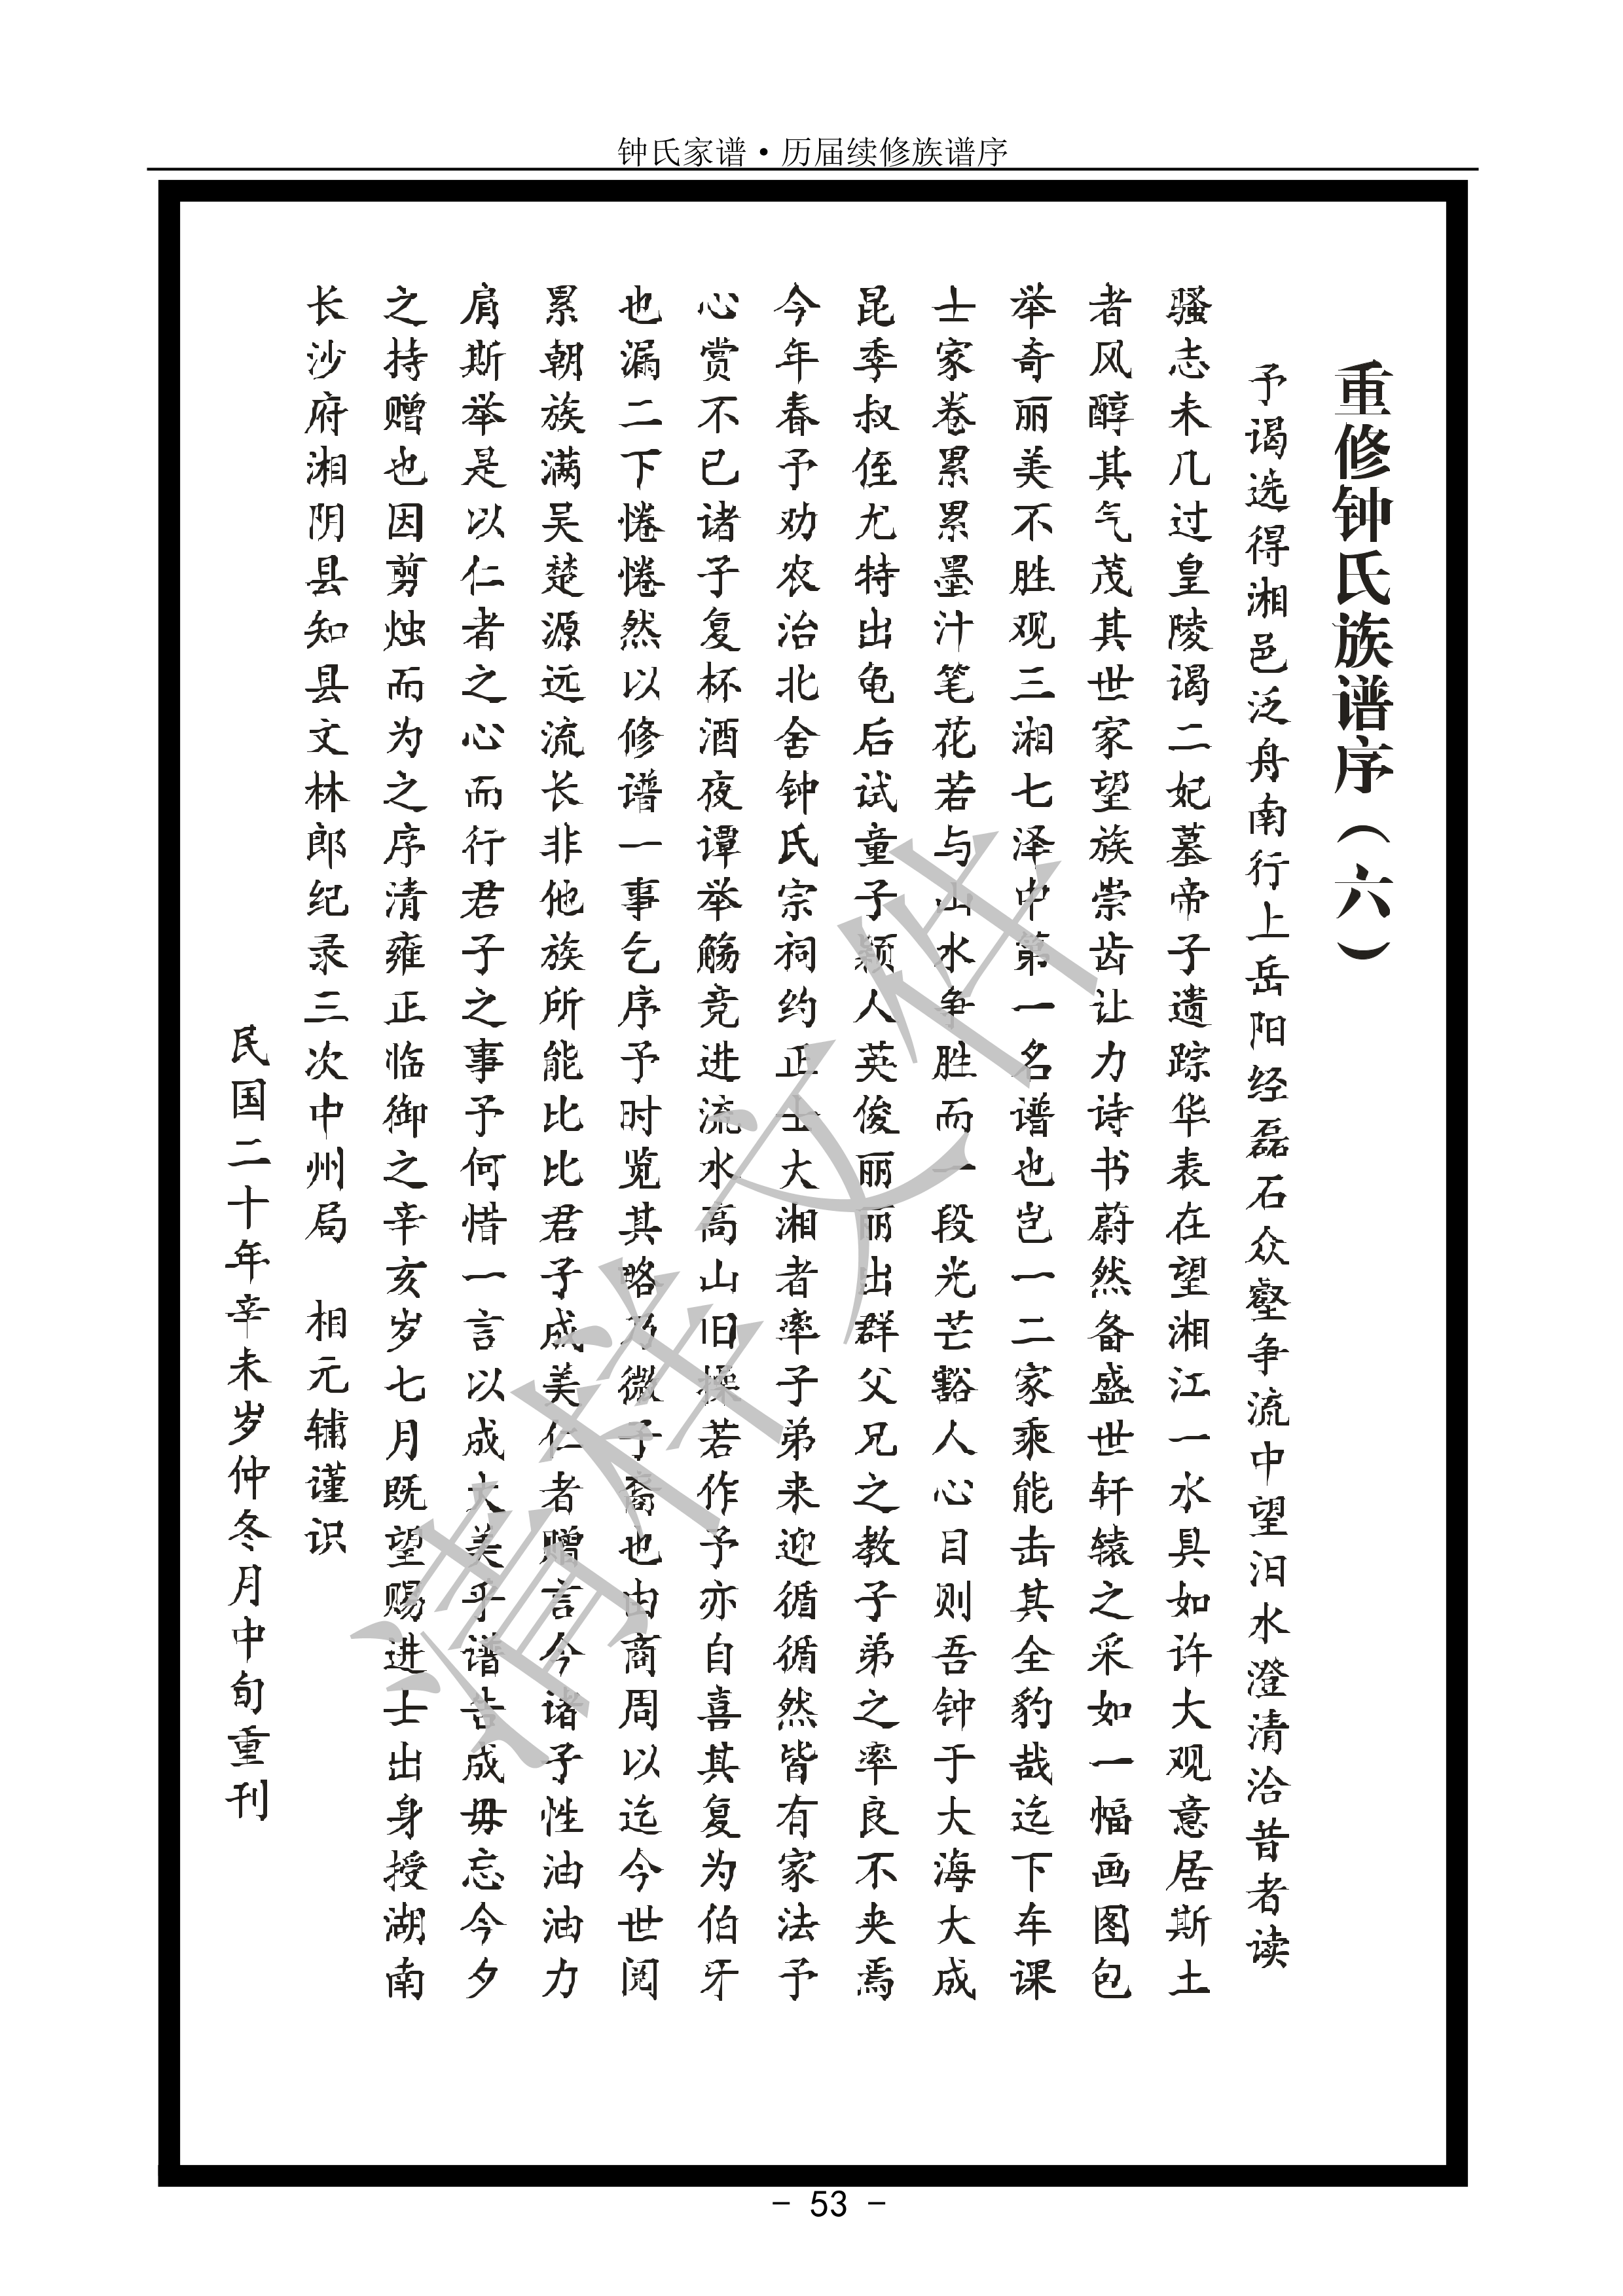 钟氏家谱·历届续修族谱序
重修钟氏族谱序（六）
予谒选得湘邑泛舟南行上岳阳经磊石众壑争流中望汨水澄清洽昔者读
骚志未几过皇陵谒二妃墓帝子遗踪华表在望湘江一水具如许大观意居斯土
者风醇其气茂其世家望族崇齿让力诗书蔚然备盛世轩辕之采如一幅画图包
举奇丽美不胜观三湘七泽中第一名谱也岂一二家乘能击其全豹哉迄下车课
士家卷累累墨汁笔花若与山水争胜而一段光芒豁人心目则吾钟于大海大成
昆季叔侄尤特出龟后试童子颖人英俊丽丽出群父兄之教子弟之率良不夹焉
今年春予劝农治北舍钟氏宗祠约正士大湘者率子弟来迎循循然皆有家法予
心赏不已诸子复杯酒夜谭举觞竞进流水高山旧操若作予亦自喜其复为伯牙
也漏二下惓惓然以修谱一事乞序予时览其略乃微子裔也由商周以迄今世阅
累朝族满吴楚源远流长非他族所能比比君子成美仁者赠言今诸子性油油力
肩斯举是以仁者之心而行君子之事予何惜一言以成大美乎谱告成毋忘今夕
之持赠也因剪烛而为之序清雍正临御之辛亥岁七月既望赐进士出身授湖南
长沙府湘阴县知县文林郎纪录三次中州局　相元辅谨识
民国二十年辛未岁仲冬月中旬重刊
清样文件
- 53 -